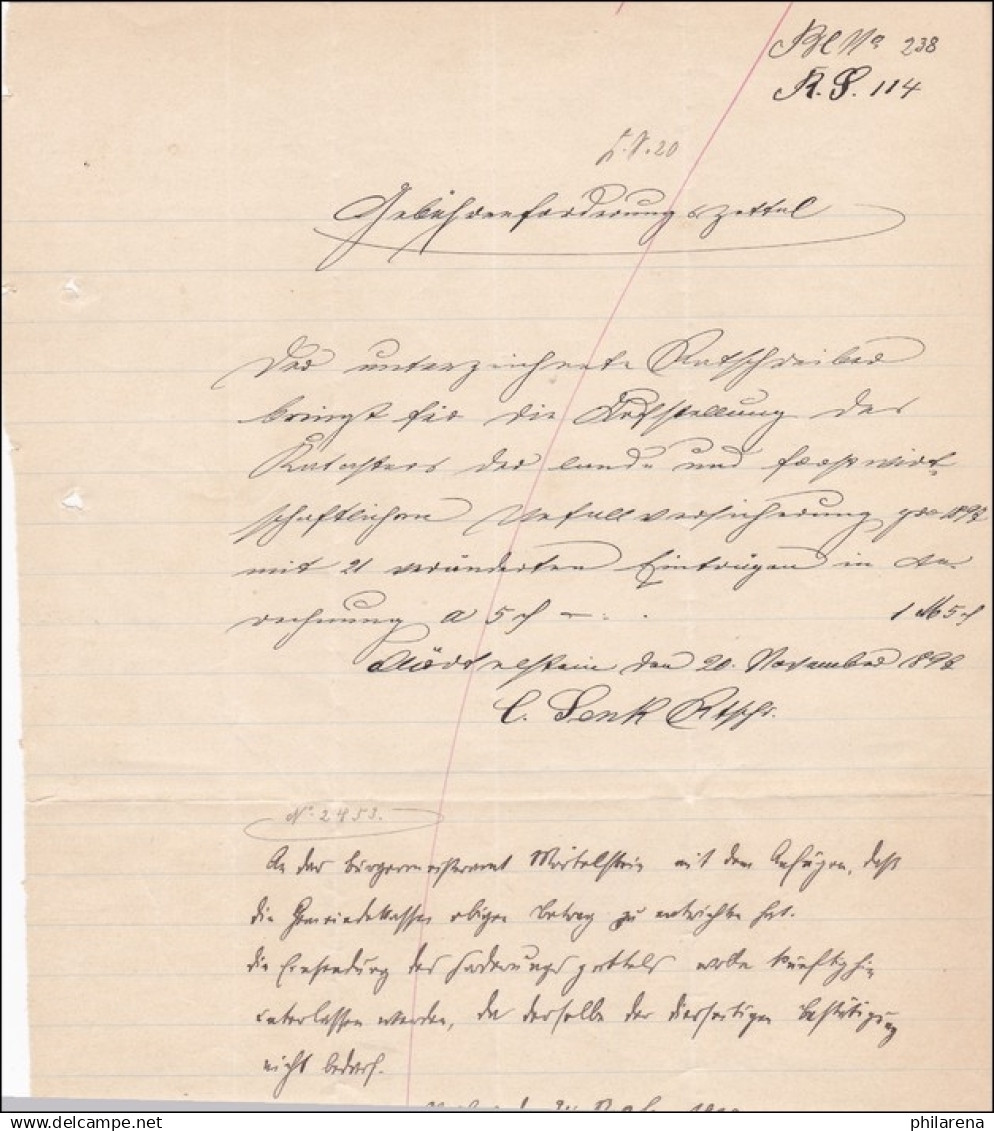 Bl No 238
R. S. 114
Gebührenforderungszettel
Der unterzeichnete Ratschreiber
bringt für die Aufstellung des
Katasters der land- und forstwirt-
schaftlichen Unfallversicherung pro 1892
mit 21 veränderten Einträgen in An-
rechnung a 5 ₰ — . 1 M 5 ₰
Mörtelstein den 20. November 1892
C. Senk Rtschr.
No. 2453.
An das Bürgermeisteramt Mörtelstein mit dem Anfügen, daß
die Gemeindekasse obigen Betrag zu entrichten hat.
die Einsendung des Forderungszettels wolle künftighin
unterlassen werden, da derselbe der diesseitigen Bestätigung
nicht bedarf.
philarena.com